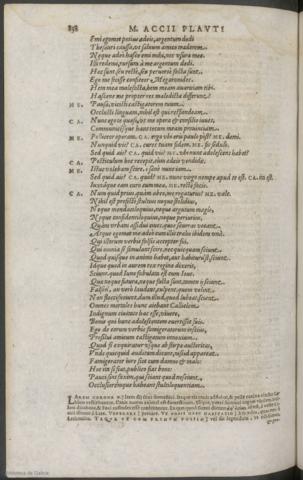 838 M. ACCII PLAVTI
Emi egomet potius aedeis, argentum dedi
Thesauri caussa, ut saluum amico traderem.
Neque adeo hasce emi mihi, nec usurae meae.
Illi redemi, rursum à me argentum dedi.
Haec sunt seu recte, seu peruorsè facta sunt.
Ego me fecisse confiteor Megaronides.
Hem mea malefacta, hem meam auaritiam tibi.
Hascine me propter res maledicta differunt?
ME. Pausa, uicisti castigatorem tuum.
Occlusti linguam, nihil est qui respondeam.
CA. Nunc ego te quaeso, ut me opera & consilio iuues,
Communicesque hanc tecum meam prouinciam.
ME. Polliceor operam. CA. ergo ubi eris paulo post? ME. domi.
Nunquid uis? CA. cures tuam fidem. ME. fit sedulo.
Sed quid ais? CA. quid uis? ME. ubi nunc adolescens habet?
CA. Posticulum hoc recepit, cum aedeis uendidit.
ME. Istuc uolebam scire. i sanè nunciam.
Sed quid ais? CA. quid? ME. nunc uirgo nempe apud te est. CA. ita est.
Iuxtàque eam curo cum mea. ME. rectè facis.
CA. Num quid prius, quàm abeo, me rogaturus? ME. uale.
Nihil est profecto stultius neque stolidius,
Neque mendaciloquius, neque argutum magis,
Neque confidentiloquius, neque periurius,
Quàm urbani assidui ciues, quos scurras uocant.
Atque egomet me adeò cum illis unà ibidem
Qui illorum uerbis falsis acceptor fui.
Qui omnia se simulant scire, nec quicquam sciunt.
Quod quisque in animo habet, aut habiturus est, sciunt.
Sciunt id quod in aurem rex reginae dixerit,
Sciunt quod Iuno fabulata est cum Ioue.
Quae neque futura, neque facta sunt, tamen ij sciunt.
Falsòn', an uerò laudent, culpent, quem uelint,
Non flocci faciunt, dum illud, quod lubeat, sciant.
Omnes mortales hunc aiebant Calliclem
Indignum ciuitate hac esse, uiuere,
Bonis qui hunc adolescentem euortisset suis.
Ego de eorum uerbis famigeratorum insciens,
Prosilui amicum castigatum innoxium.
Quod si exquiratur usque ab stirpe auctoritas,
Vnde quicquid auditum dicant, nisi id appareat,
Famigerator res sit cum damno & malo:
Hoc ita si fiat, publico fiat bono:
Pauci sint faxim, qui sciant quod nesciunt,
Occlusioremque habeant stultiloquentiam.